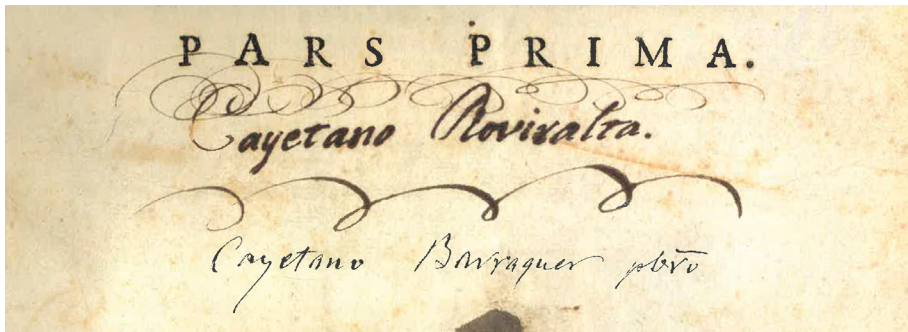 PARS PRIMA.
Cayetano Roviralta.
Cayetano Barraquer pbrõ